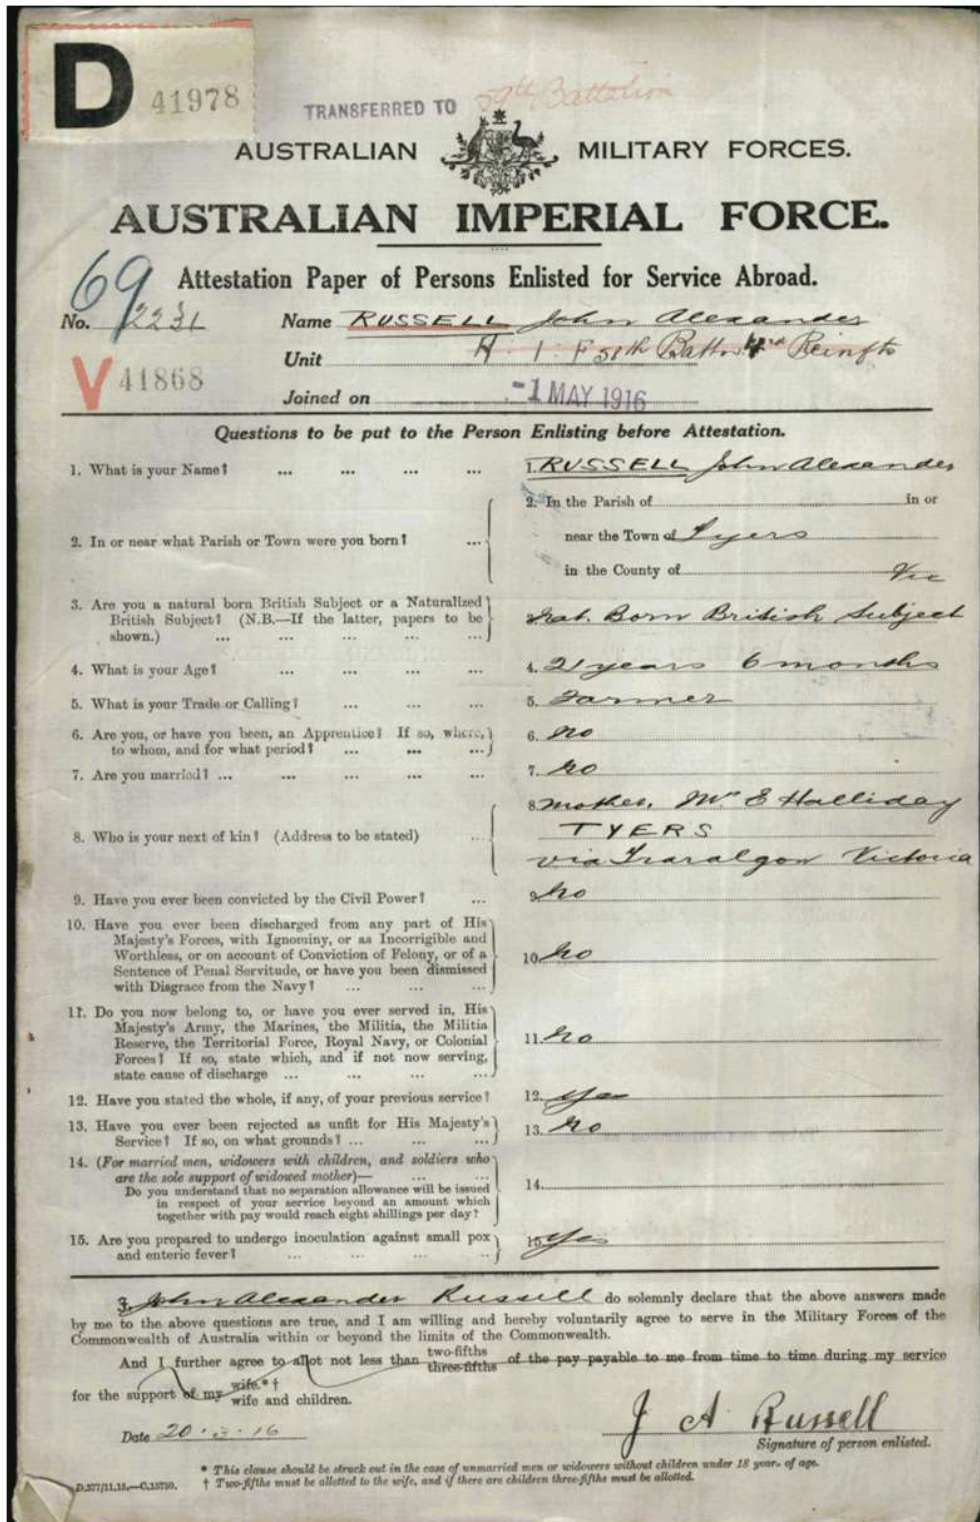 D 41978
TRANSFERRED TO 59th Battalion
AUSTRALIAN MILITARY FORCES.
AUSTRALIAN IMPERIAL FORCE.
Attestation Paper of Persons Enlisted for Service Abroad.
69
No. 2231 Name RUSSELL John Alexander
Unit Battn Reinfts
V 41868
Joined on -1 MAY 1916
Questions to be put to the Person Enlisting before Attestation.
1. What is your Name? ... ... ... ... 1. RUSSELL John Alexander
2. In or near what Parish or Town were you born? ... 2. In the Parish of in or
near the Town of Tyers
in the County of Vic
3. Are you a natural born British Subject or a Naturalized Nat. Born British Subject
British Subject? (N.B.—If the latter, papers to be
shown.) ... ... ... ...
4. What is your Age? ... ... ... ... 4. 21 years 6 months
5. What is your Trade or Calling? ... ... ... 5. Farmer
6. Are you, or have you been, an Apprentice? If so, where, 6. No
to whom, and for what period? ... ... ...
7. Are you married? ... ... ... ... ... 7. No
8. Who is your next of kin? (Address to be stated) ... 8. Mother, Mrs E Halliday
TYERS
via Traralgon Victoria
9. Have you ever been convicted by the Civil Power? ... 9. No
10. Have you ever been discharged from any part of His
Majesty's Forces, with Ignominy, or as Incorrigible and
Worthless, or on account of Conviction of Felony, or of a 10. No
Sentence of Penal Servitude, or have you been dismissed
with Disgrace from the Navy? ... ... ...
11. Do you now belong to, or have you ever served in, His
Majesty's Army, the Marines, the Militia, the Militia
Reserve, the Territorial Force, Royal Navy, or Colonial 11. No
Forces? If so, state which, and if not now serving,
state cause of discharge ... ... ... ...
12. Have you stated the whole, if any, of your previous service? 12. Yes
13. Have you ever been rejected as unfit for His Majesty's 13. No
Service? If so, on what grounds? ... ... ...
14. (For married men, widowers with children, and soldiers who
are the sole support of widowed mother)— ... ...
Do you understand that no separation allowance will be issued 14.
in respect of your service beyond an amount which
together with pay would reach eight shillings per day?
15. Are you prepared to undergo inoculation against small pox 15. Yes
and enteric fever? ... ... ... ...
I, John Alexander Russell do solemnly declare that the above answers made
by me to the above questions are true, and I am willing and hereby voluntarily agree to serve in the Military Forces of the
Commonwealth of Australia within or beyond the limits of the Commonwealth.
And I further agree to allot not less than two-fifths three-fifths of the pay payable to me from time to time during my service
for the support of my wife.*† wife and children.
J A Russell
Date 20.3.16
Signature of person enlisted.
* This clause should be struck out in the case of unmarried men or widowers without children under 18 years of age.
D.577/11.15.—C.15730. † Two-fifths must be allotted to the wife, and if there are children three-fifths must be allotted.